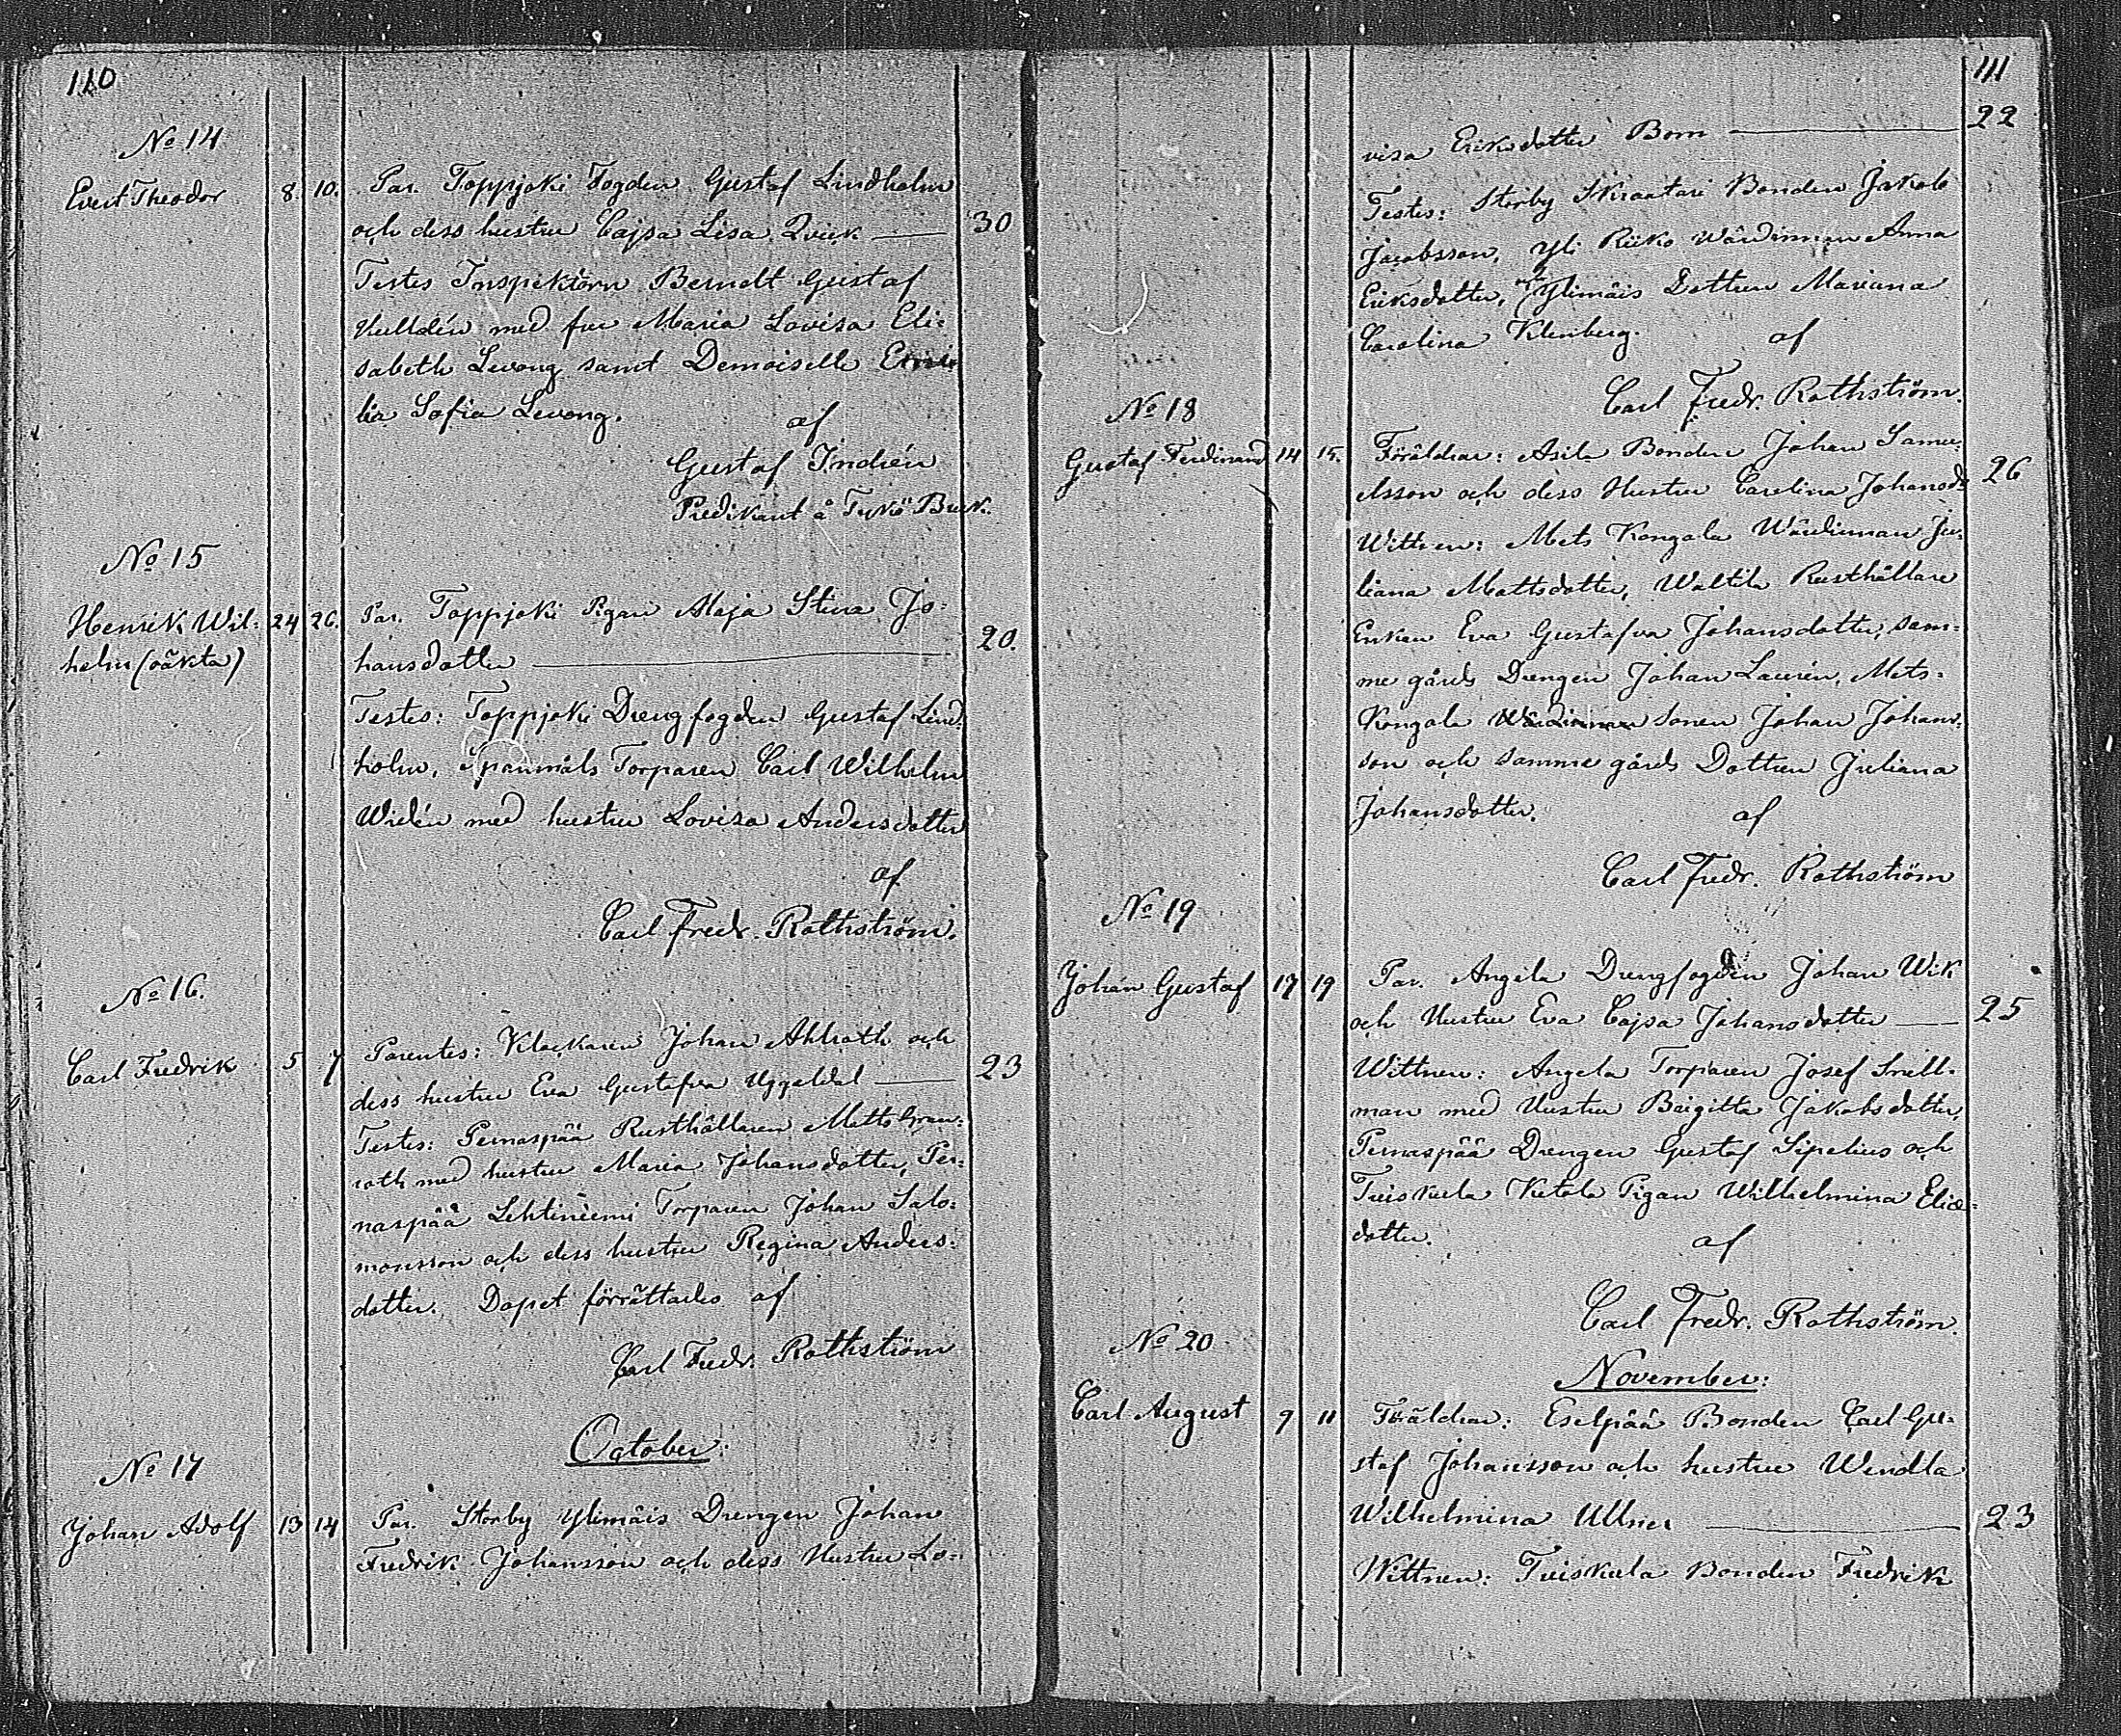 110
No 14
Evert Theodor 8. 10. Par. Toppjoki Fogden Gustaf Lindholm
och dess hustru Cajsa Lisa Qvick — 30
Testes Inspektörn Berndt Gustaf
Hulldén med fru Maria Lovisa Eli-
sabeth Levong samt Demoiselle Emi-
lia Sofia Levong.
af
Gustaf Indrén
Predikant å Tykö Bruk.
No 15
Henrik Wil- 24 26. Par. Toppjoki Pigan Maja Stina Jo-
helm (oäkta) hansdotter — 20.
Testes: Toppjoki Drengfogden Gustaf Lind-
holm, Spanmåls Torparen Carl Wilhelm
Widén med hustru Lovisa Andersdotter
af
Carl Fredr. Rothström.
No 16.
Carl Fredrik 5 7 Parentes: Klockaren Johan Ahlroth och
dess hustru Eva Gustafva Uggeldal — 23
Testes: Pernaspää Rusthållaren Matts Gran-
roth med hustru Maria Johansdotter, Per-
naspää Lehtiniemi Torparen Johan Salo-
monsson och dess hustru Regina Anders-
dotter. Dopet förrättades af
Carl Fredr. Rothström
October:
No 17
Johan Adolf 13 14 Par. Storby Ylimäis Drengen Johan
Fredrik Johansson och dess Hustru Lo-
111
visa Eriksdotter Bom — 22
Testes: Storby Skraatari Bonden Jakob
Jacobsson, Yli Riiko Wärdinnan Anna
Eriksdotter, och Ylimäis Dottren Mariana
Carolina Klenberg.
af
Carl Fredr. Rothström.
No 18
Gustaf Ferdinand 14 15. Föräldrar: Asila Bonden Johan Samu-
elsson och dess Hustru Carolina Johansdr 26
Wittnen: Mets Kongola Wärdinnan Ju-
liana Mattsdotter, Waltila Rusthållare
Enkan Eva Gustafva Johansdotter, sam-
me gårds Drengen Johan Laurén, Mets-
Kongola Wärdinnan Sonen Johan Johans-
son och samme gårds Dottren Juliana
Johansdotter.
af
Carl Fredr. Rothström
No 19
Johan Gustaf 17 19 Par. Angela Drengfogden Johan Wik
och Hustru Eva Cajsa Johansdotter — 25
Wittnen: Angela Torparen Josef Snell-
man med Hustru Brigitta Jakobsdotter,
Pernaspää Drengen Gustaf Sipelius och
Tuiskula Ketola Pigan Wilhelmina Elias-
dotter.
af
Carl Fredr. Rothström.
No 20
November:
Carl August 9 11 Föräldrar: Eselpää Bonden Carl Gu-
staf Johansson och hustru Wendla
Wilhelmina Ullner — 23
Wittnen: Tuiskula Bonden Fredrik